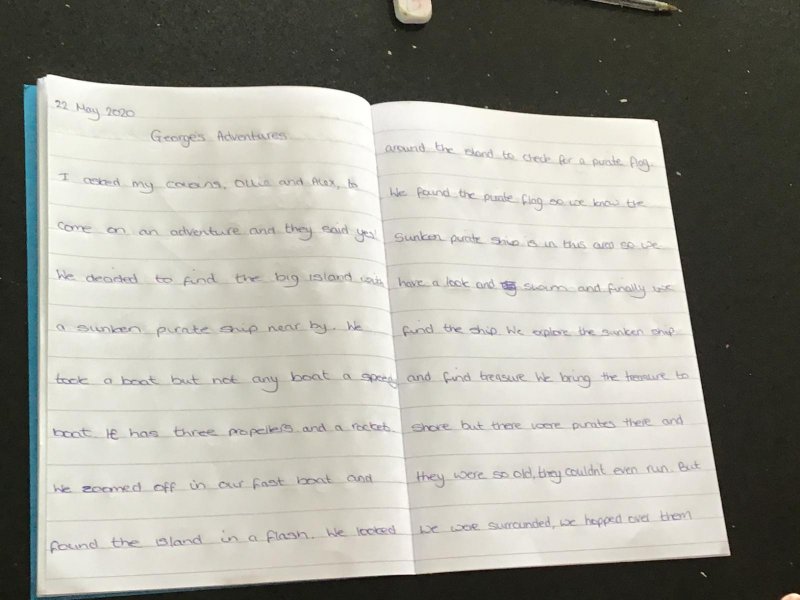 22 May 2020
George's Adventures
I asked my cousins, Ollie and Alex, to
come on an adventure and they said yes!
We decided to find the big island with
a sunken pirate ship near by. We
took a boat but not any boat a speed
boat. It has three propellers and a rocket.
We zoomed off in our fast boat and
found the island in a flash. We looked
around the island to check for a pirate flag.
We found the pirate flag so we know the
sunken pirate ship is in this area so we
have a look and swam and finally we
find the ship. We explore the sunken ship
and find treasure. We bring the treasure to
shore but there were pirates there and
they were so old, they couldn't even run. But
we were surrounded, we hopped over them